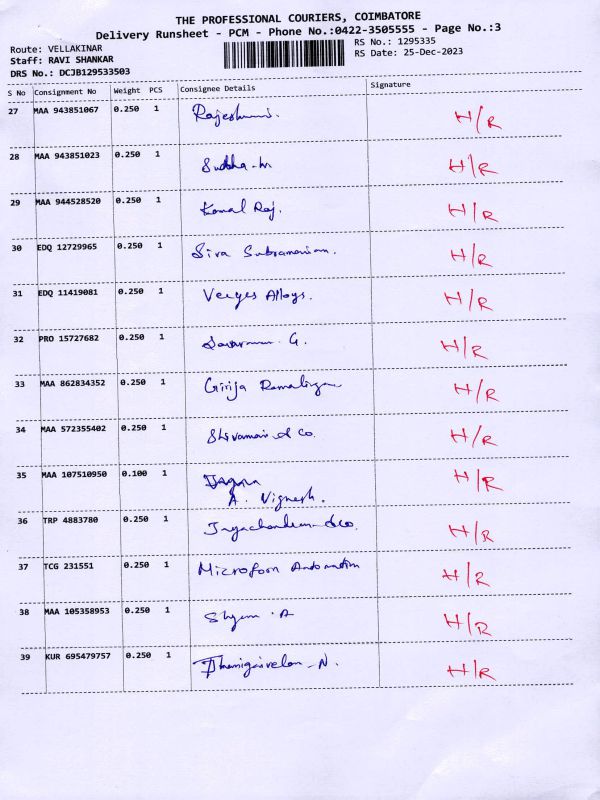 THE PROFESSIONAL COURIERS, COIMBATORE
Delivery Runsheet - PCM - Phone No.:0422-3505555 - Page No.:3
Route: VELLAKINAR RS No.: 1295335
Staff: RAVI SHANKAR RS Date: 25-Dec-2023
DRS No.: DCJB129533503
S No Consignment No Weight PCS Consignee Details Signature
27 MAA 943851067 0.250 1 H/R
28 MAA 943851023 0.250 1 Sudha H/R
29 MAA 944528520 0.250 1 Kamal Raj. H/R
30 EDQ 12729965 0.250 1 Siva Subramaniam. H/R
31 EDQ 11419081 0.250 1 Alloys. H/R
32 PRO 15727682 0.250 1 G. H/R
33 MAA 862834352 0.250 1 Girija Ramalingam H/R
34 MAA 572355402 0.250 1 & Co. H/R
35 MAA 107510950 0.100 1 H/R
A. Vignesh.
36 TRP 4883780 0.250 1 Jayachandran & Co. H/R
37 TCG 231551 0.250 1 H/R
38 MAA 105358953 0.250 1 Shyam . A H/R
39 KUR 695479757 0.250 1 Thanigaivelan . N. H/R